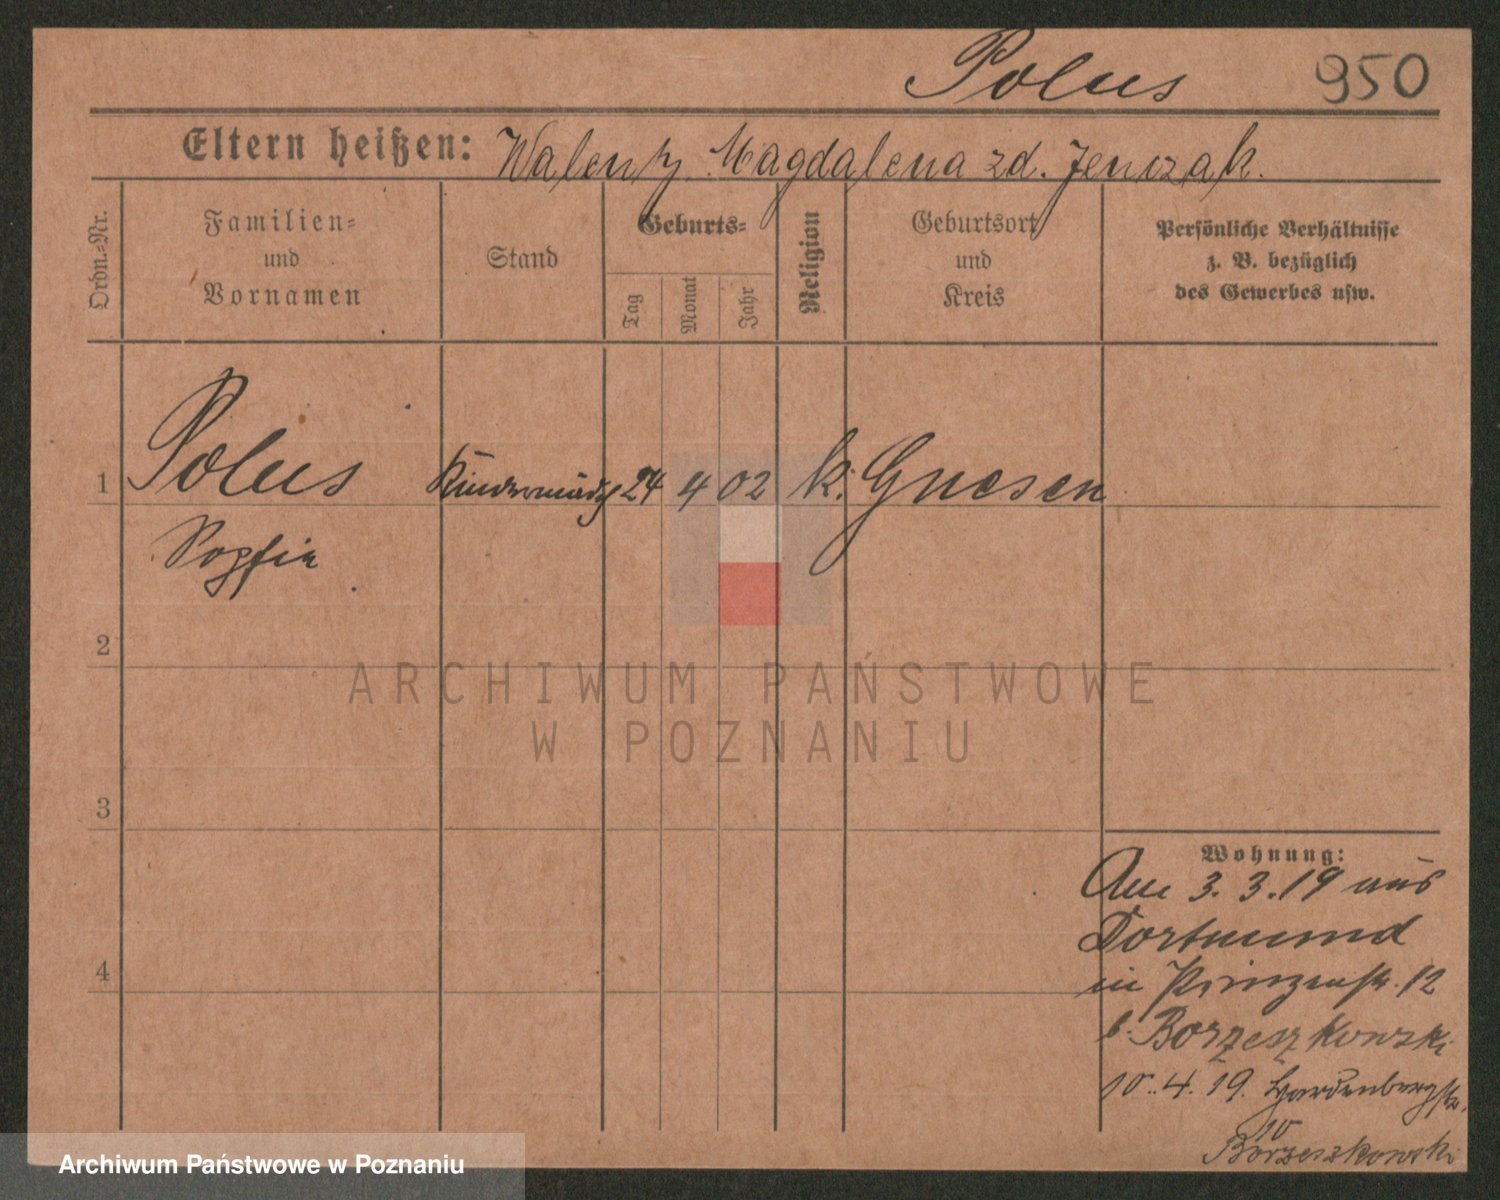 Polus 950
Eltern heißen: Walenty. Magdalena zd. Jenczak.
Ordn.-Nr.
Familien=
und
Vornamen
Stand
Geburts=
Tag
Monat
Jahr
Religion
Geburtsort
und
Kreis
Persönliche Verhältnisse
z. B. bezüglich
des Gewerbes usw.
1 Polus Kindermädch 24 4 02 k. Gnesen
Sophie
2
ARCHIWUM PAŃSTWOWE
W POZNANIU
3
Wohnung:
Am 3. 3. 19 aus
Dortmund
4
in Prinzenstr. 12
b. Borzeszkowski
10. 4. 19. Hardenbergstr.
10
Borzeszkowski
Archiwum Państwowe w Poznaniu